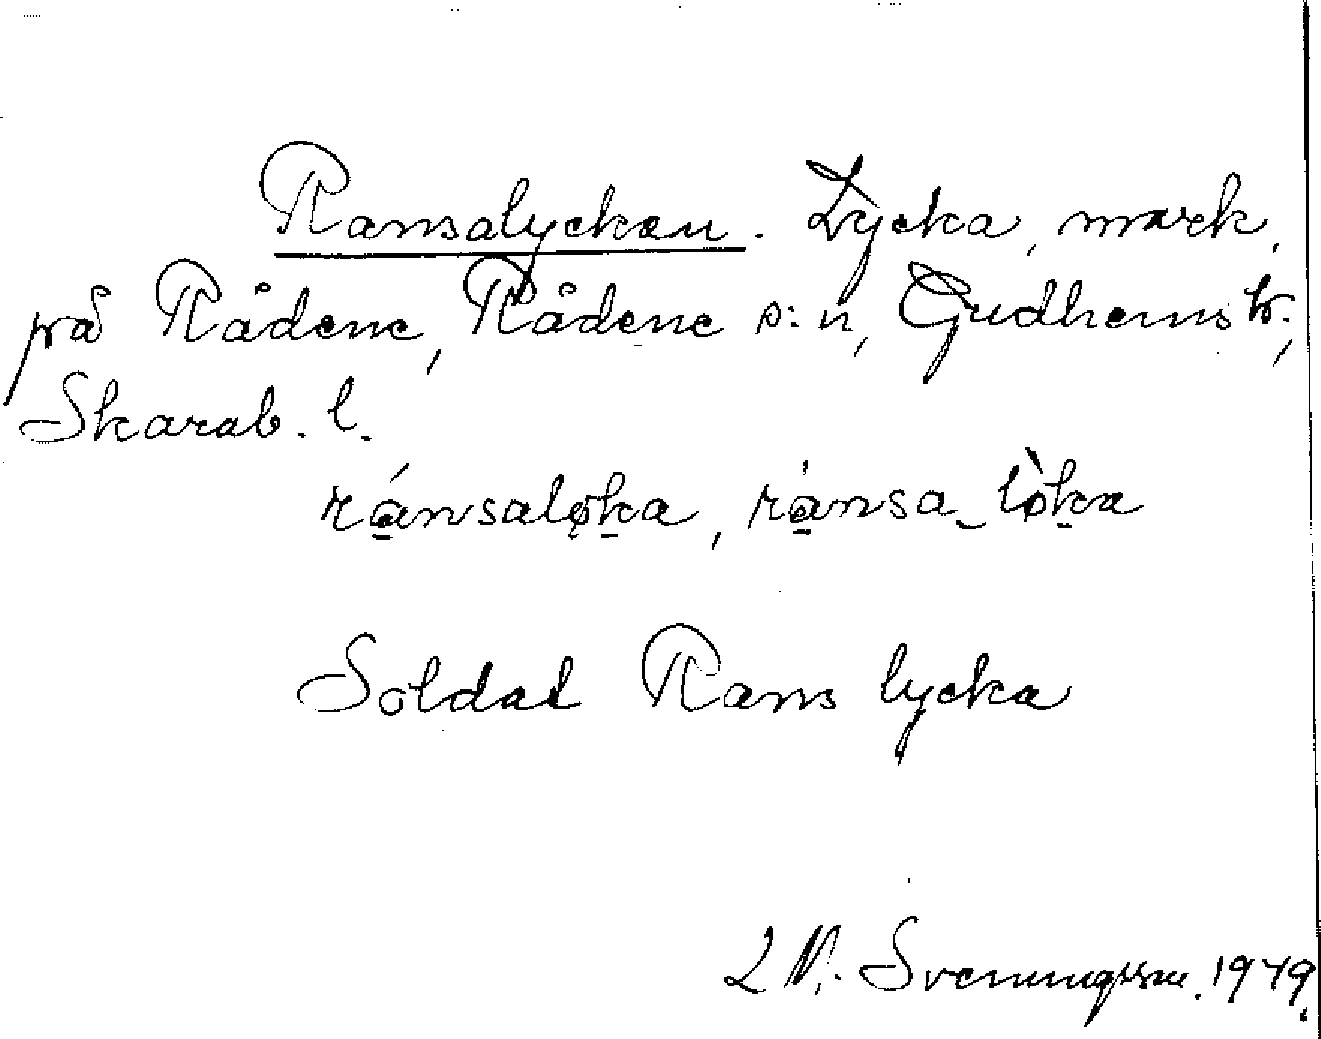 Ramsalyckan. Lycka, mark,
på Rådene, Rådene s:n, Gudhems h.,
Skarab. l.
ránsaløka, ránsa_lòka
Soldat Rams lycka
L N. Svenungsson. 1979.